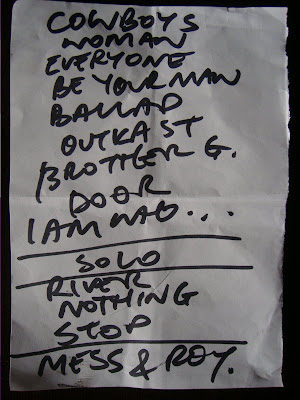 COWBOYS
WOMAN
EVERYONE
BE YOUR MAN
BALLAD
OUTKAST
BROTHER G.
DOOR
I AM WHO...
SOLO
RIVER
NOTHING
STOP
MESS & ROY.